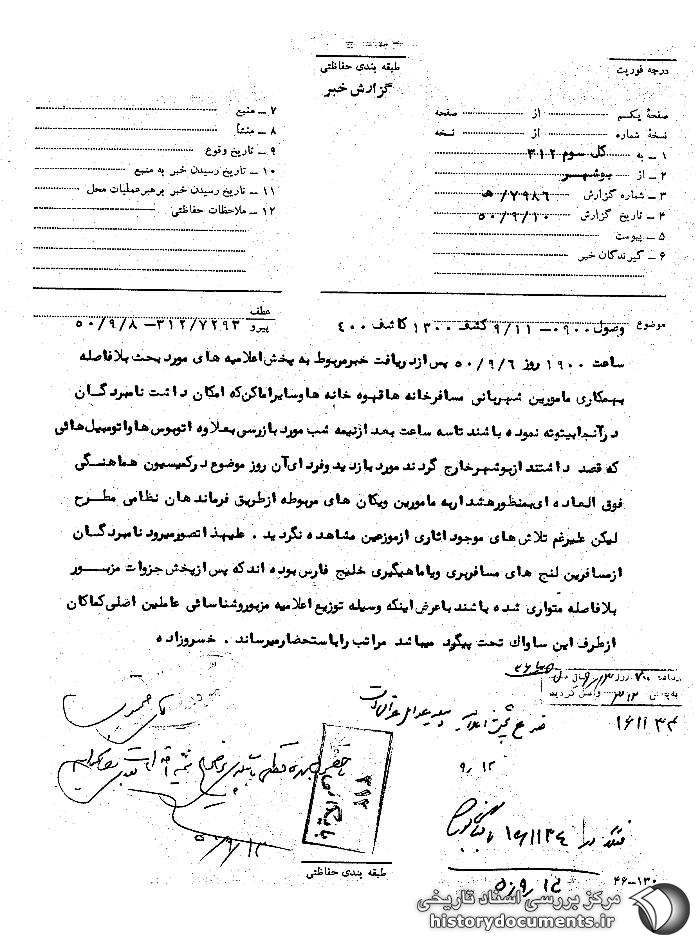 طبقه بندی حفاظتی
گزارش خبر
درجه فوریت
صفحهٔ یکم از صفحه
نسخهٔ شماره از نسخه
۱ ــ به کل سوم ۳۱۲
۲ ــ از بوشهر
۳ ــ شماره گزارش ۷۹۸۶/ هـ
۴ ــ تاریخ گزارش ۵۰/۹/۱۰
۵ ــ پیوست
۶ ــ گیرندگان خبر
۷ ــ منبع
۸ ــ منشأ
۹ ــ تاریخ وقوع
۱۰ ــ تاریخ رسیدن خبر به منبع
۱۱ ــ تاریخ رسیدن خبر برهبرعملیات محل
۱۲ ــ ملاحظات حفاظتی
موضوع وصول ۰۹۰۰ــ۹/۱۱ کشف ۱۳۰۰ کاشف ۴۰۰
عطف
پیرو ۳۱۲/۷۲۹۳ــ۵۰/۹/۸
ساعت ۱۹۰۰ روز ۵۰/۹/۶ پس ازدریافت خبرمربوط به پخش اعلامیه های مورد بحث بلافاصله
بهمکاری مامورین شهربانی مسافرخانه ها قهوه خانه ها وسایراماکن که امکان داشت نامبردگان
درآنجابیتوته نموده باشند تاسه ساعت بعد ازنیمه شب مورد بازرسی بعلاوه اتوبوس ها واتومبیل هائی
که قصد داشتند ازبوشهرخارج گردند مورد بازدید وفردای آن روز موضوع درکمیسیون هماهنگی
فوق العاده ای بمنظورهشداربه مامورین ویکان های مربوطه ازطریق فرماندهان نظامی مطرح
لیکن علیرغم تلاش های موجود اثاری ازموزعین مشاهده نگردید . علیهذا تصورمیرود نامبردگان
ازمسافرین لنج های مسافربری ویاماهیگیری خلیج فارس بوده اند که پس ازپخش جزوات مزبور
بلافاصله متواری شده باشند باعرض اینکه وسیله توزیع اعلامیه مزبوروشناسائی عاملین اصلی کماکان
ازطرف این ساواک تحت پیگرد میباشد مراتب رابا ستحضارمیرساند . خسروزاده
۱۶۱۱۳۴
۳۱۲
بایگانی
۹/۱۲
۵۰/۹/۱۳
۱۶۱۱۳۴
طبقه بندی حفاظتی
۴۶-۱۳۰
مرکز بررسی اسناد تاریخی
historydocuments.ir